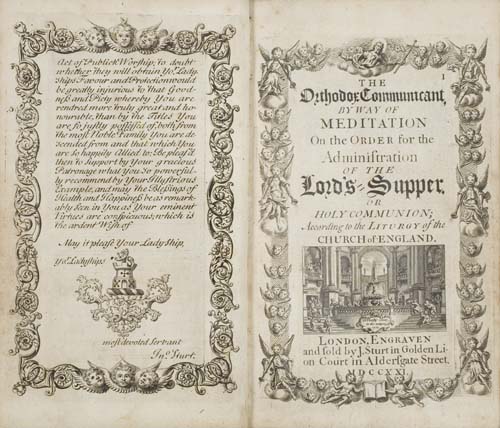 Act of Publick Worship, to doubt
whether they will obtain Yor. Lady
Ships Favour and Protection would
be greatly injurious to that Good-
ness and Piety whereby You are
rendred more truly great and ho-
nourable, than by the Titles You
are so justly possessed of, both from
the most Noble Family You are de
scended from and that which You
are so happily Allied to; Be pleas'd
then to Support by Your gracious
Patronage what You so powerful-
ly recommend by Your Illustrious
Example, and may the Blessings of
Health and Happiness be as remark-
ably seen in You as Your eminent
Virtues are conspicuous; which is
the ardent Wish of
May it please Your LadyShip,
Yor. Ladyships
most devoted servant
Jno. Sturt.
1
THE
Orthodox Communicant,
BY WAY OF
MEDITATION
On the ORDER for the
Administration
OF THE
Lord's=Supper,
OR
HOLY COMMUNION;
According to the LITURGY of the
CHURCH of ENGLAND.
LONDON, ENGRAVEN
and sold by J. Sturt in Golden Li-
on Court in Aldersgate Street.
MDCCXXI.